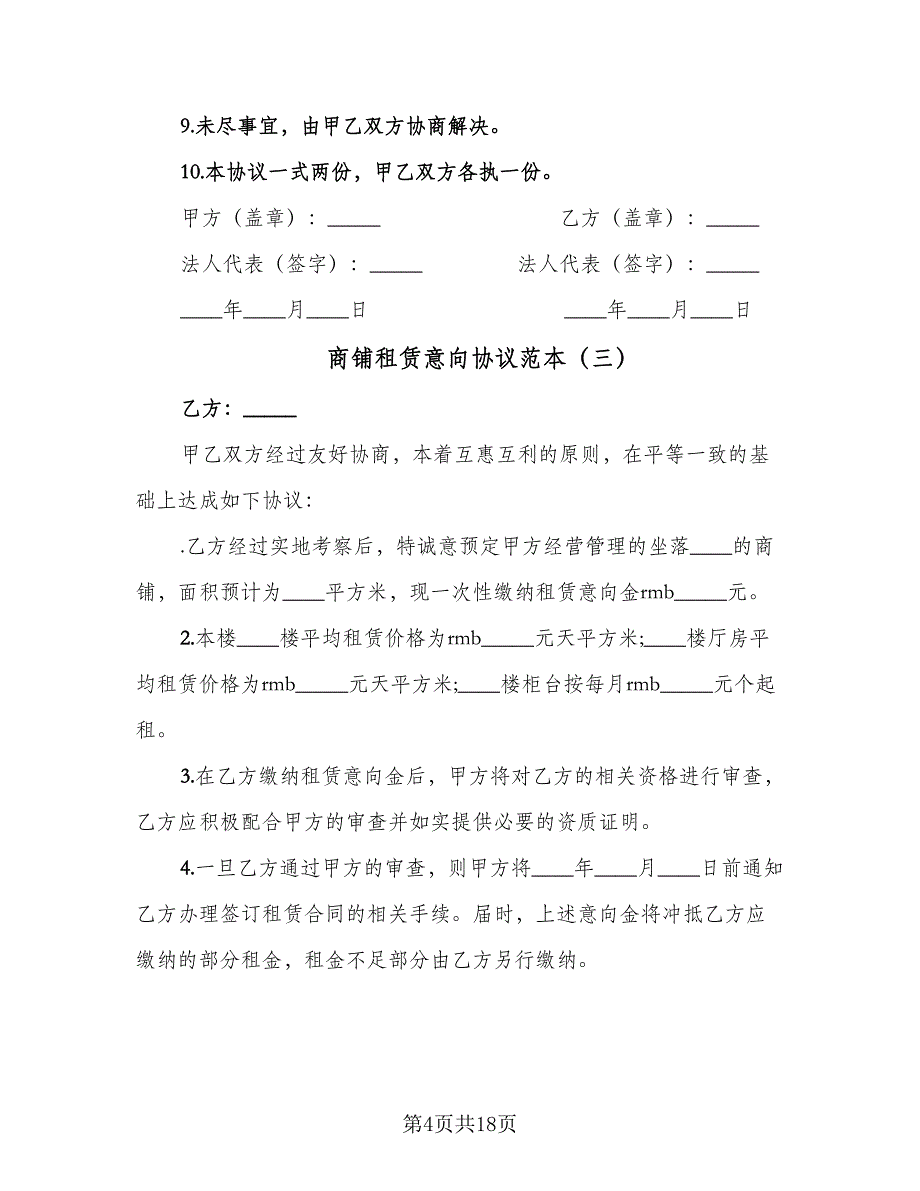 9.未尽事宜，由甲乙双方协商解决。
10.本协议一式两份，甲乙双方各执一份。
甲方（盖章）：_____ 乙方（盖章）：_____
法人代表（签字）：_____ 法人代表（签字）：_____
____年____月____日 ____年____月____日
商铺租赁意向协议范本（三）
乙方：_____
甲乙双方经过友好协商，本着互惠互利的原则，在平等一致的基
础上达成如下协议：
.乙方经过实地考察后，特诚意预定甲方经营管理的坐落____的商
铺，面积预计为____平方米，现一次性缴纳租赁意向金rmb_____元。
2.本楼____楼平均租赁价格为rmb_____元天平方米;____楼厅房平
均租赁价格为rmb_____元天平方米;____楼柜台按每月rmb_____元个起
租。
3.在乙方缴纳租赁意向金后，甲方将对乙方的相关资格进行审查，
乙方应积极配合甲方的审查并如实提供必要的资质证明。
4.一旦乙方通过甲方的审查，则甲方将____年____月____日前通知
乙方办理签订租赁合同的相关手续。届时，上述意向金将冲抵乙方应
缴纳的部分租金，租金不足部分由乙方另行缴纳。
第4页共18页